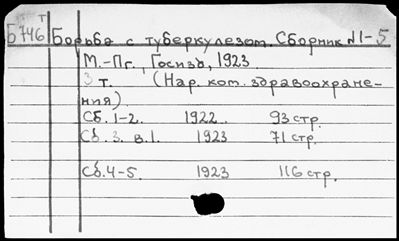 т
Б746 Борьба с туберкулезом. Сборник №1-5
М.-Пг., Госизд, 1923
3 т. (Нар. ком. здравоохране-
ния).
Сб. 1-2. 1922. 93 стр.
Сб. 3. в.1. 1923 71 стр.
Сб. 4-5. 1923 116 стр.